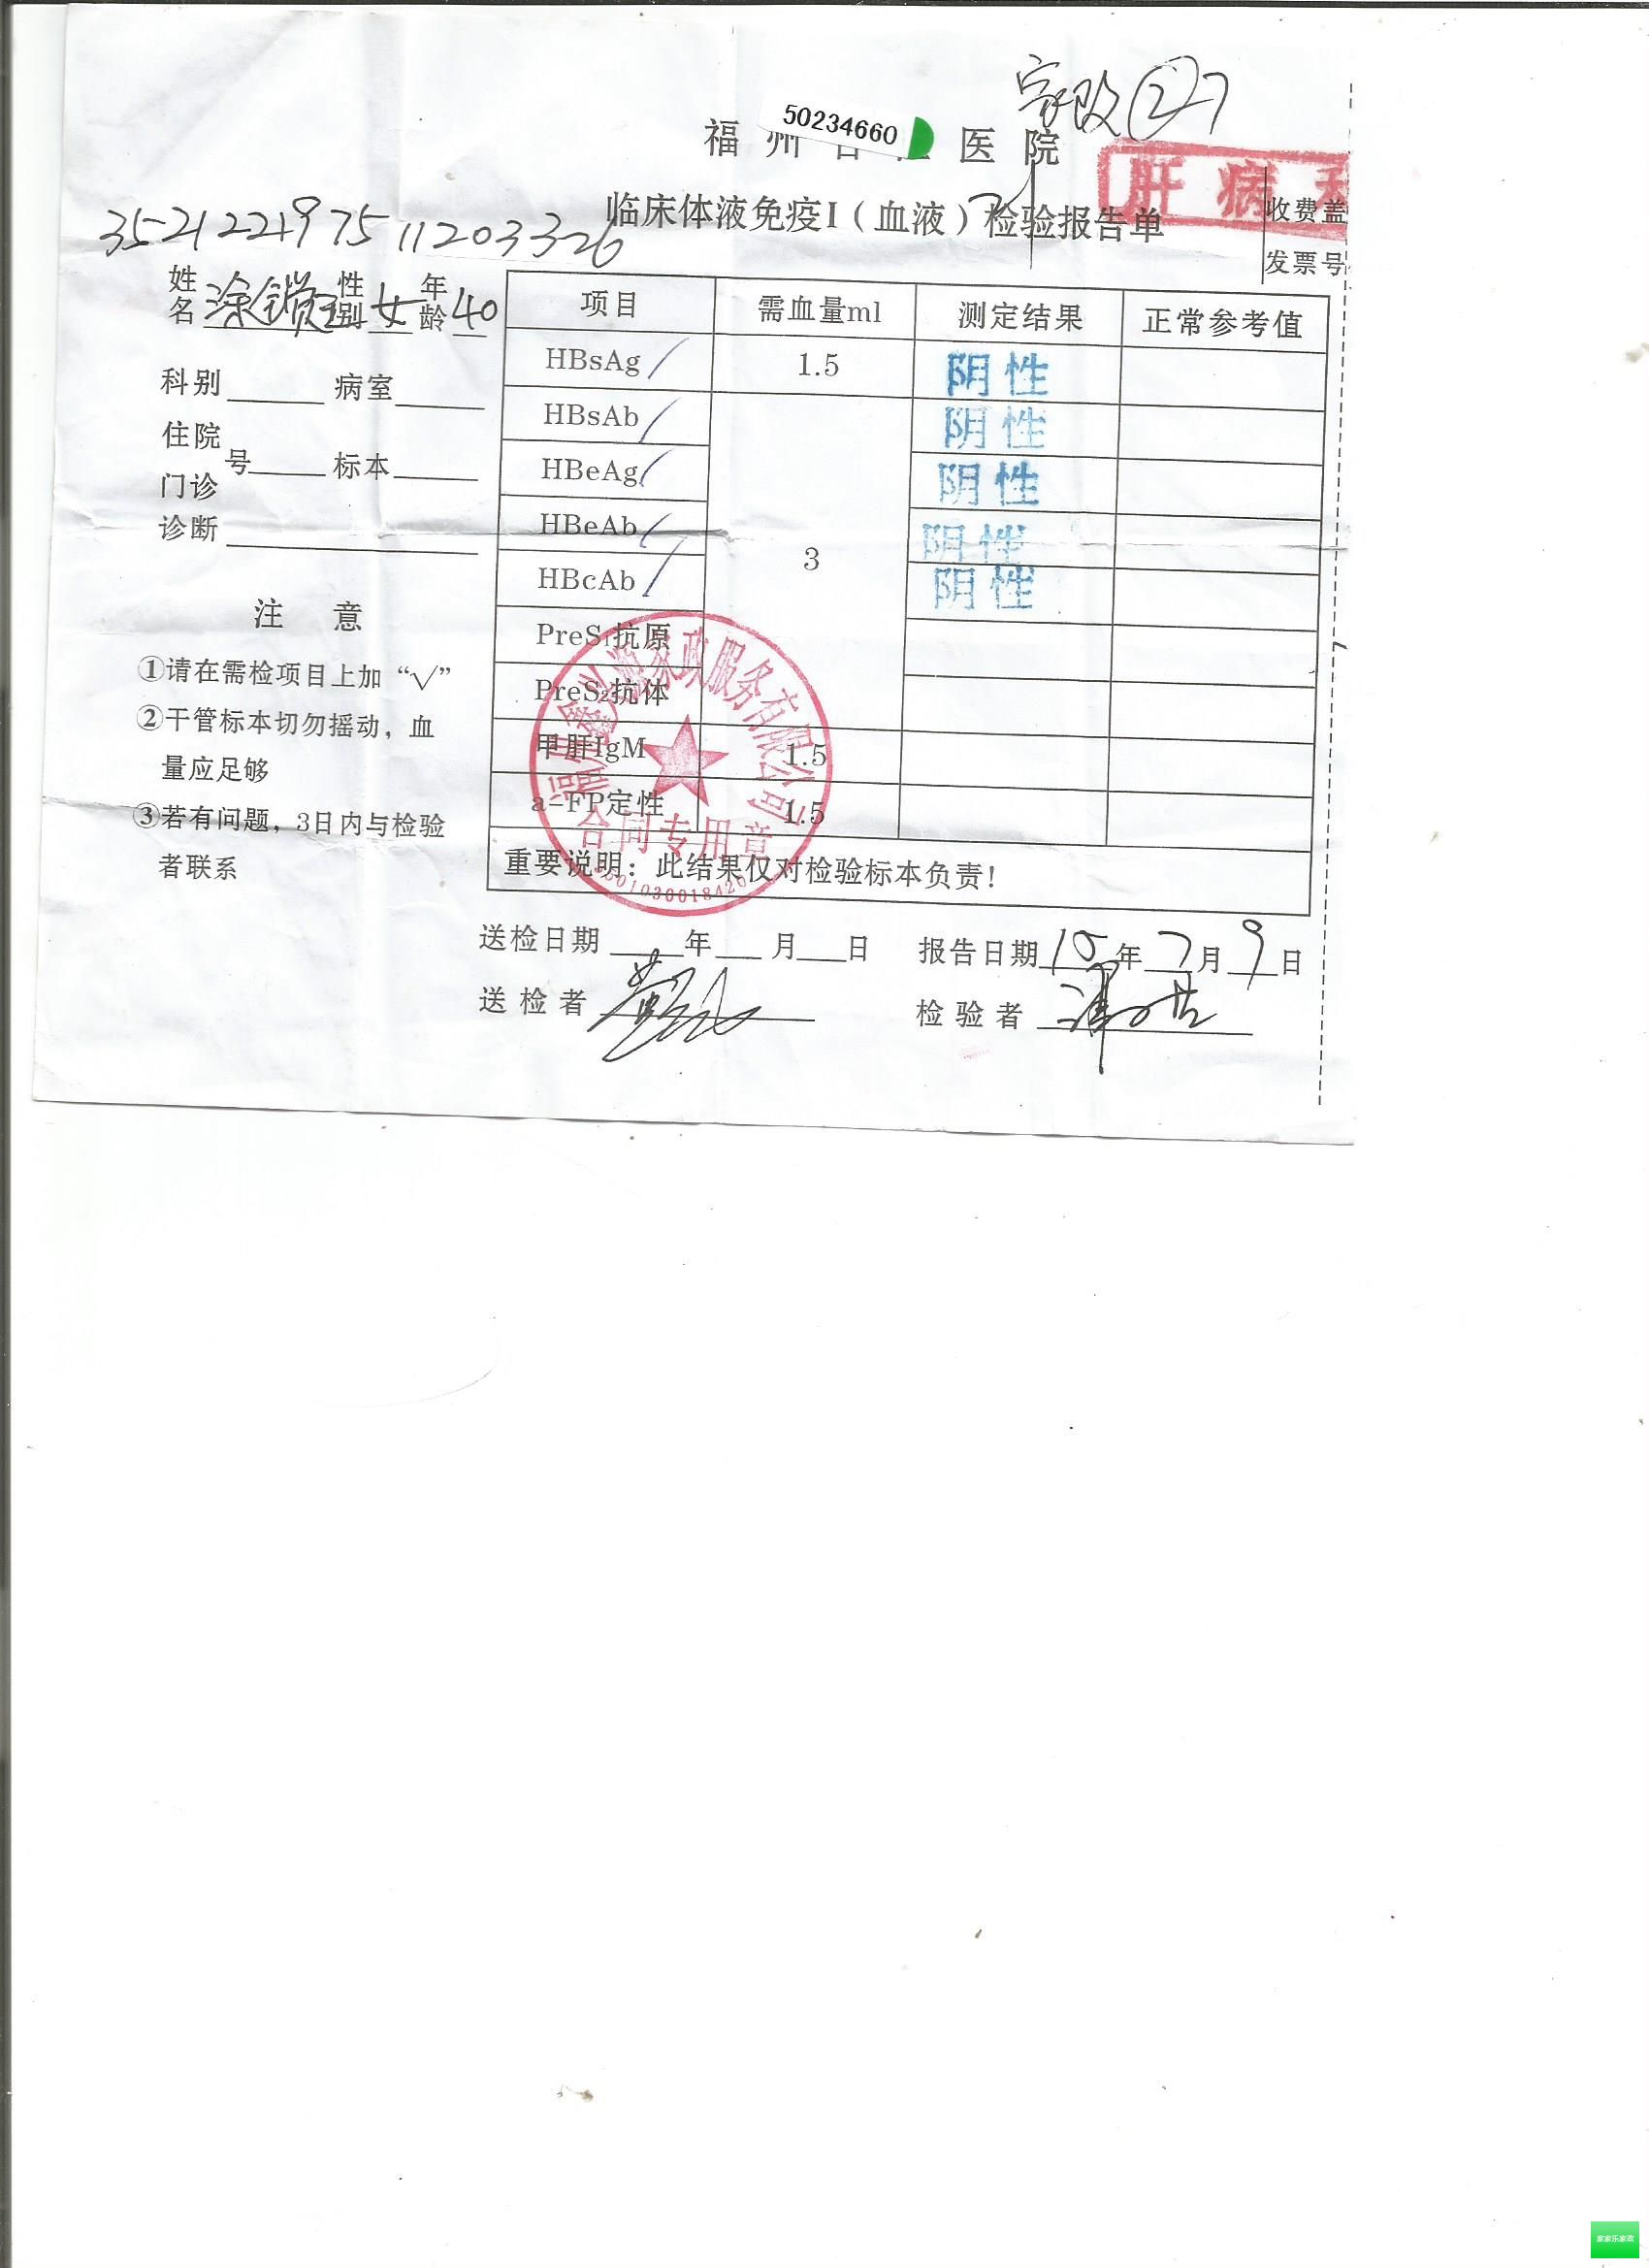 家政②-7
50234660
福州 医院
肝病科
临床体液免疫I（血液）检验报告单
收费盖
发票号
352122197511203326
姓名 涂 性别 女 年龄 40
科别 病室
住院号 标本
门诊
诊断
注 意
①请在需检项目上加“√”
②干管标本切勿摇动，血
量应足够
③若有问题，3日内与检验
者联系
项目 需血量ml 测定结果 正常参考值
HBsAg 1.5 阴性
HBsAb 阴性
HBeAg 阴性
HBeAb 3 阴性
HBcAb 阴性
PreS₁抗原
PreS₂抗体
甲肝IgM 1.5
a-FP定性 1.5
重要说明：此结果仅对检验标本负责！
家政服务有限公司
合同专用章
3501030018420
送检日期 年 月 日 报告日期 15年7月9日
送检者 检验者
家家乐家政